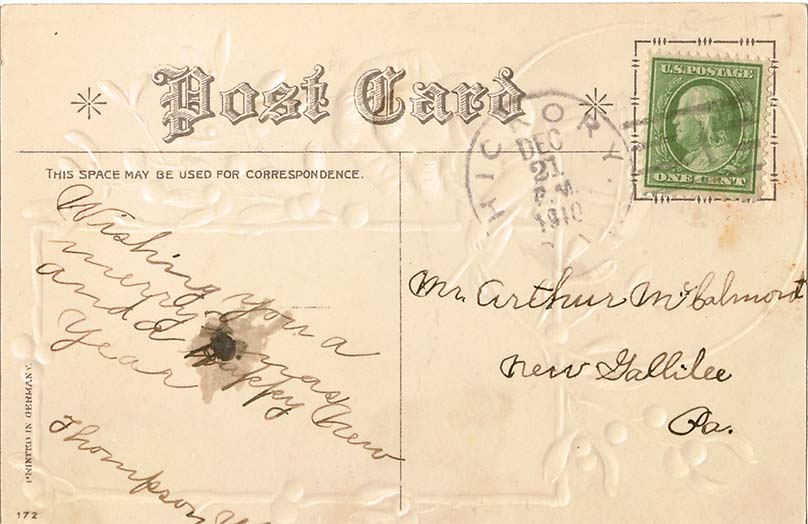 Post Card
THIS SPACE MAY BE USED FOR CORRESPONDENCE.
U.S. POSTAGE
ONE CENT
HICKORY
DEC
21
M.
1910
Wishing you a
merry Xmas
and a Happy New
Year
Thompson
Mr. Arthur McCalmont
New Gallilee
Pa.
PRINTED IN GERMANY.
172